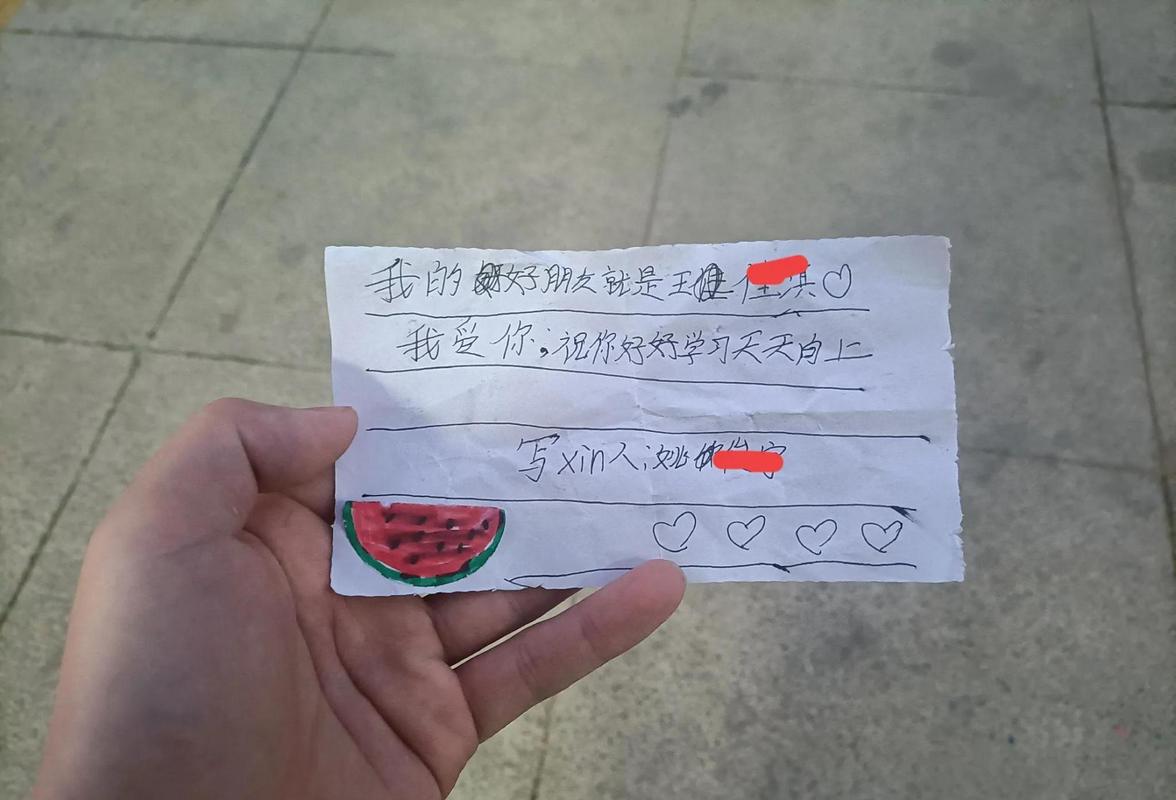 我的好朋友就是王淇
我爱你;祝你好好学习天天向上
写xin人;姚